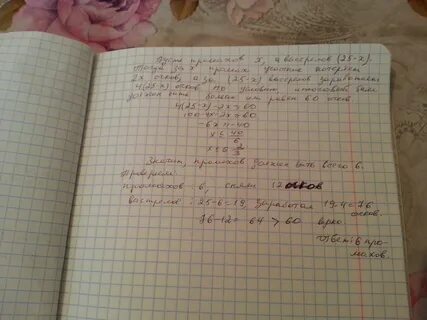 Пусть промахов x, а выстрелов (25-x).
Тогда за x промах участник потерял
2x очков, а за (25-x) выстрелов заработал
4(25-x) очков. По условию, итоговый балл
должен быть больше или равен 60 очков.
4(25-x)-2x≥60
100-4x-2x≥60
-6x≥-40
x≤ 40/6
x≤6 2/3
Значит, промахов должен быть всего 6.
Проверяем:
промахов-6, сняли 12 очков
выстрелов: 25-6=19, заработал 19·4=76
очков.
76-12= 64 > 60 верно.
Ответ: 6 про
махов.